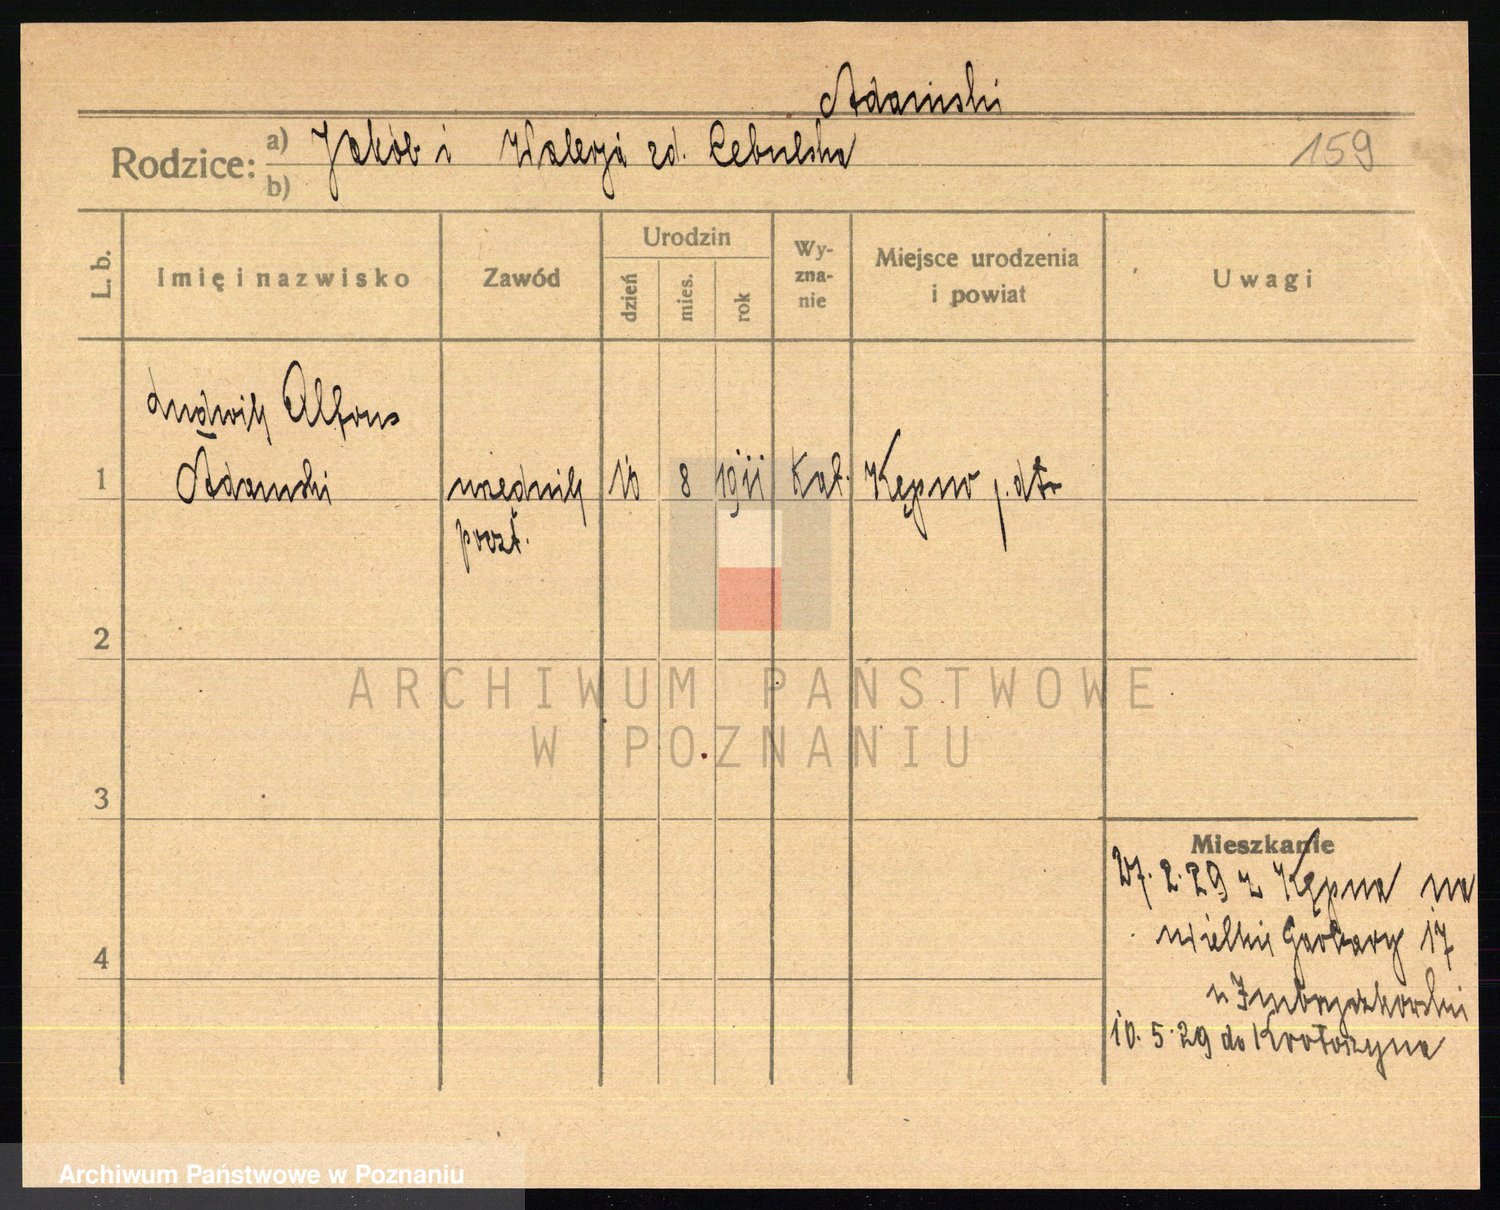 Adamski
Rodzice: a) Jakób i Walerja zd. Cebulska
b)
159
L. b.
Imię i nazwisko
Zawód
Urodzin
dzień
mies.
rok
Wy-
zna-
nie
Miejsce urodzenia
i powiat
Uwagi
Ludwik Alfons
1 Adamski urzędnik 16 8 1911 Kat. Kępno p. dto
poczt.
2
ARCHIWUM PAŃSTWOWE
W POZNANIU
3
Mieszkanie
27. 2. 29 z Kępna na
4 wielkie Garbary 17
u
10. 5. 29 do Krotoszyna
Archiwum Państwowe w Poznaniu